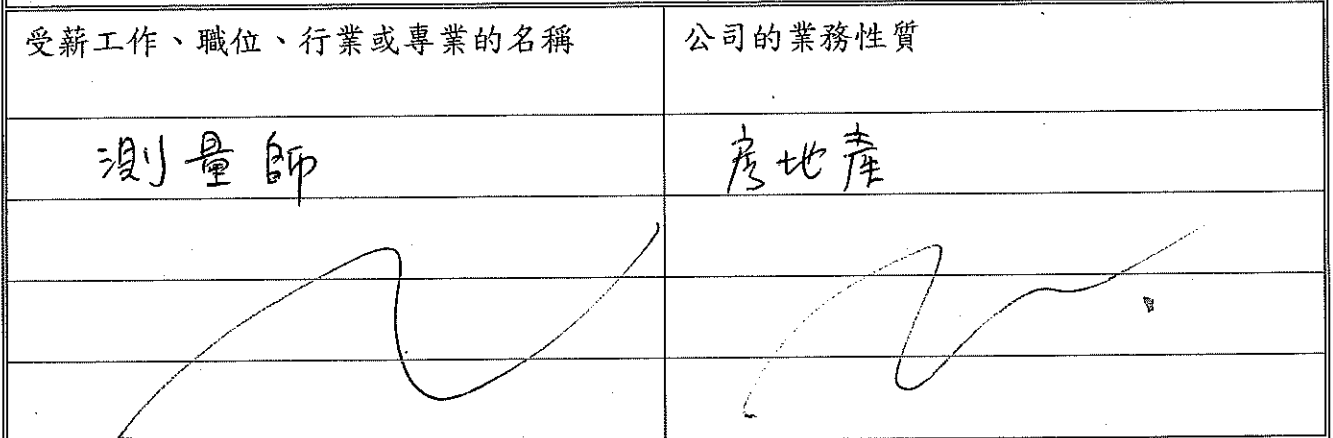 受薪工作、職位、行業或專業的名稱
公司的業務性質
測量師
房地產